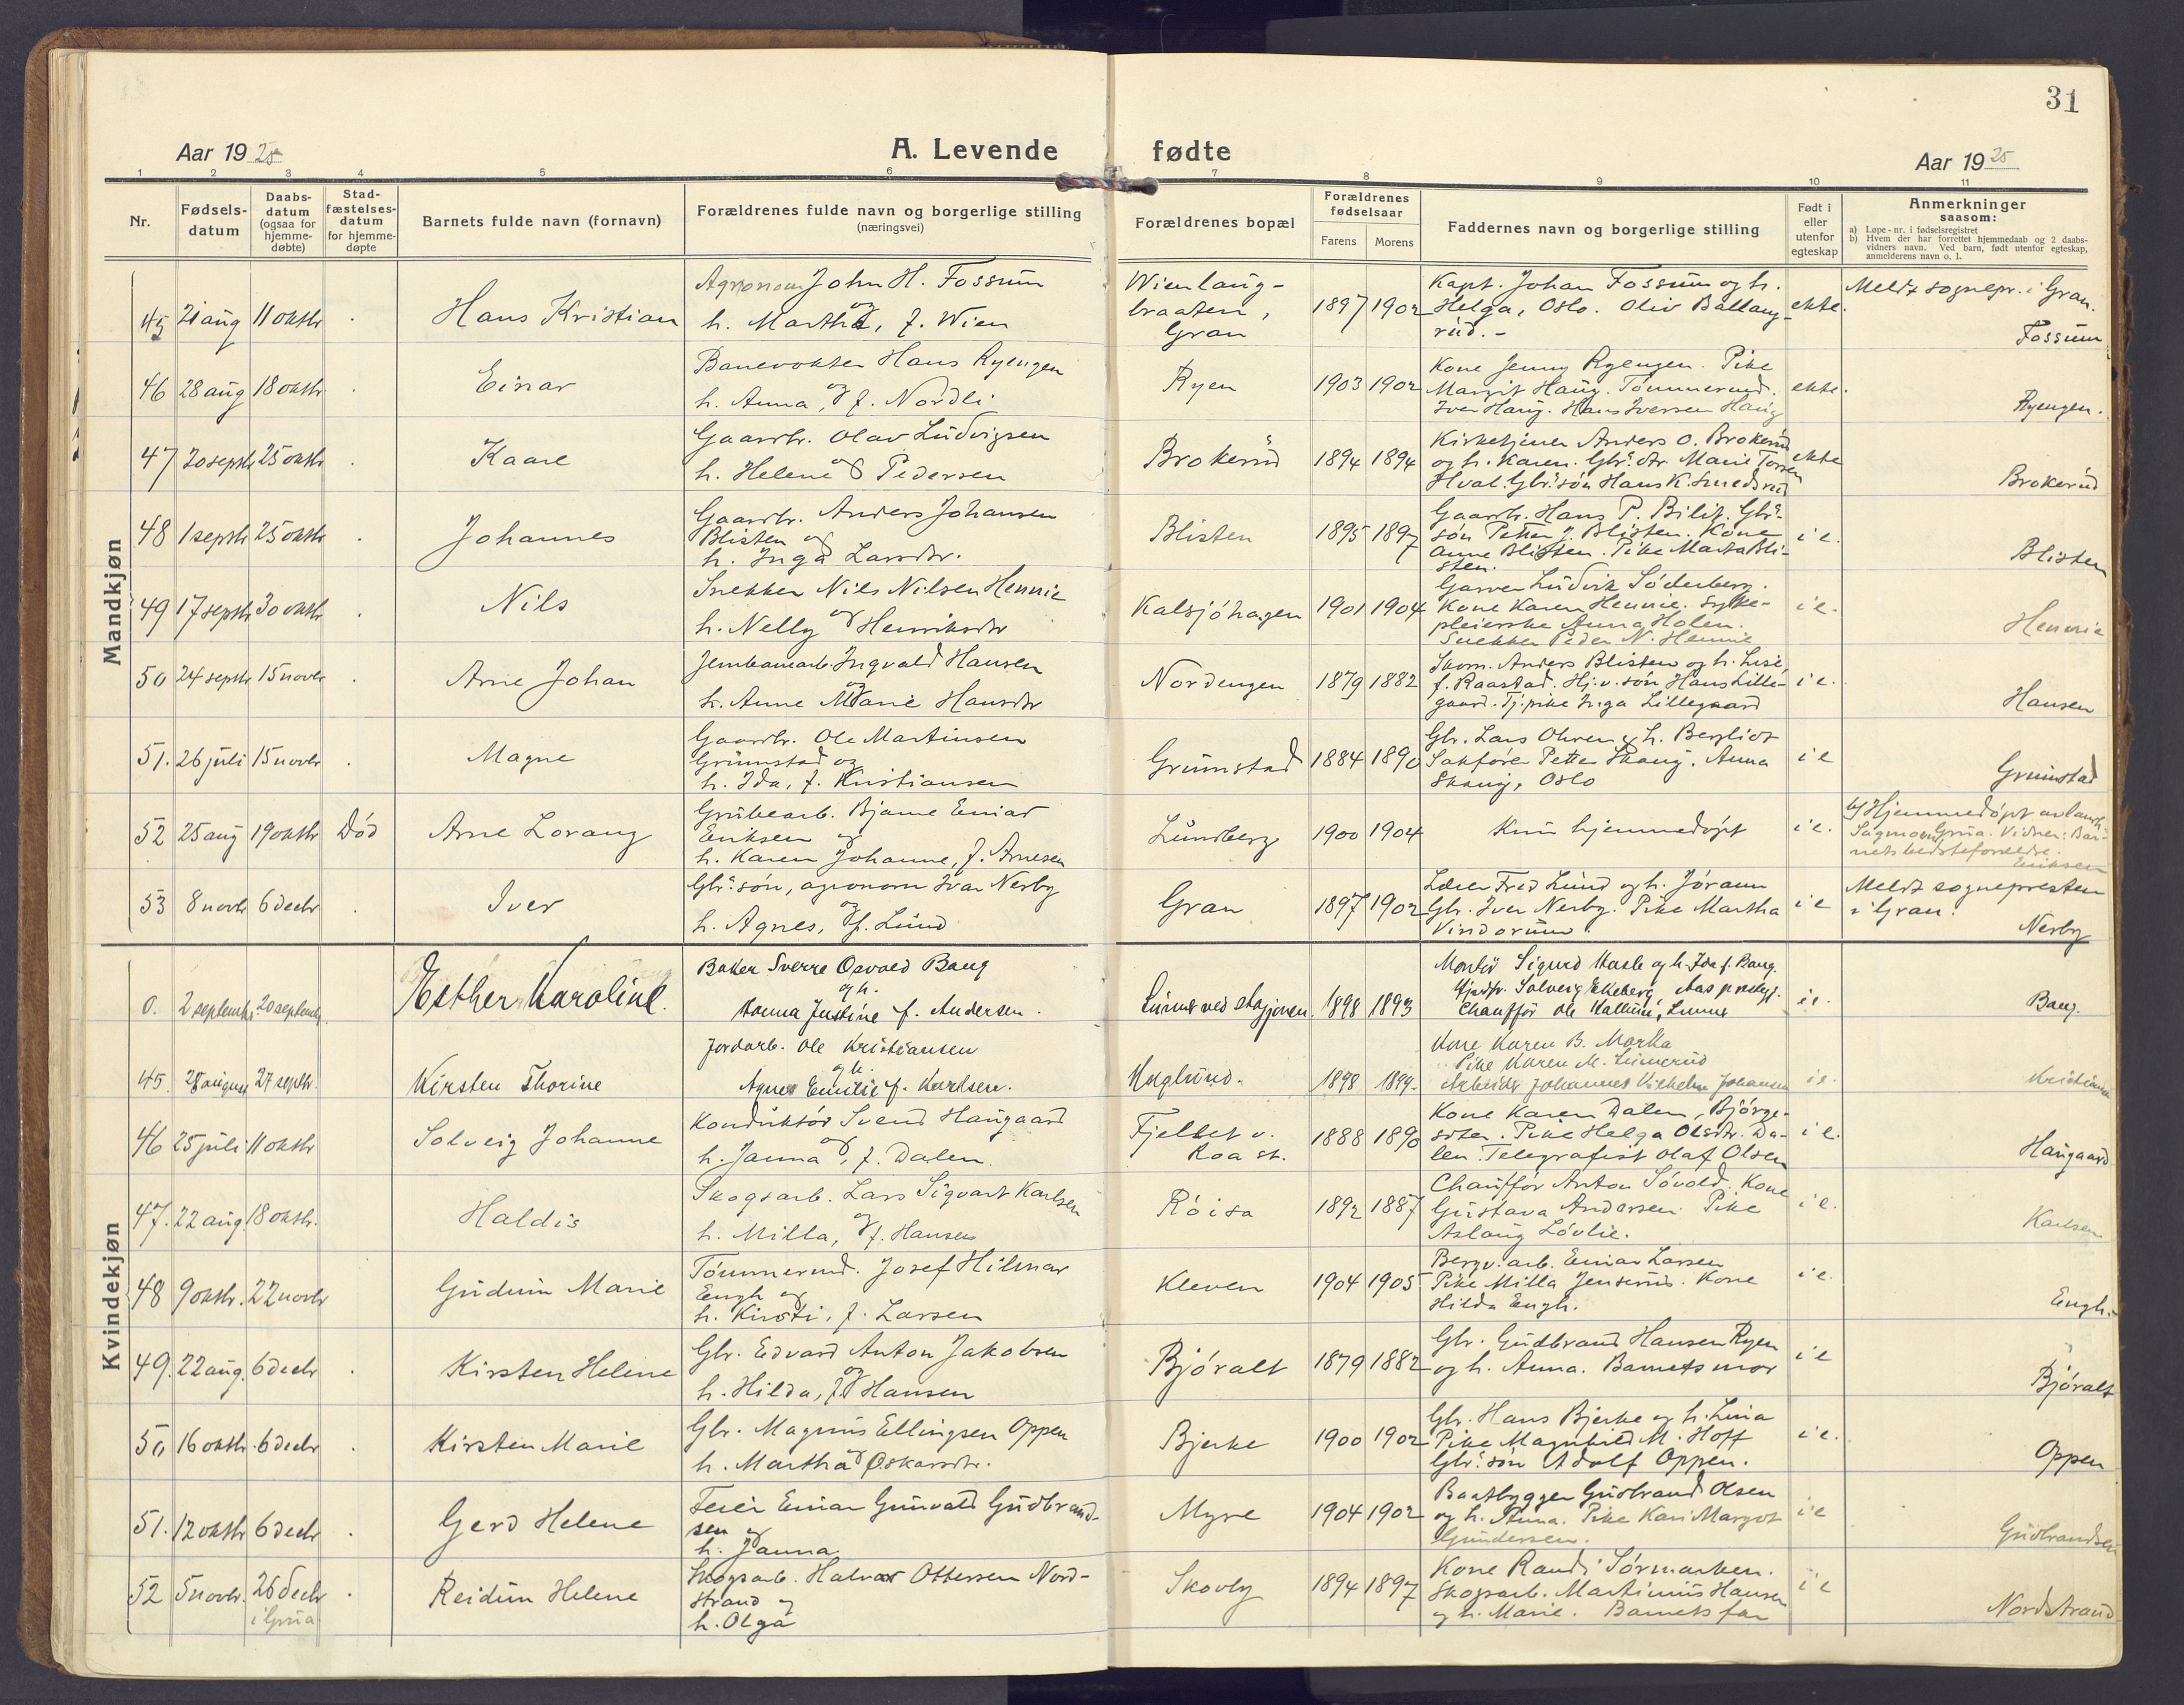 31
Aar 1925
A. Levende fødte
Aar 1925
1 2 3 4 5 6 7 8 9 10 11
Nr.
Fødsels-
datum
Daabs-
datum
(ogsaa for
hjemme-
døbte)
Stad-
fæstelses-
datum
for hjemme-
døpte
Barnets fulde navn (fornavn)
Forældrenes fulde navn og borgerlige stilling
(næringsvei)
Forældrenes bopæl
Forældrenes
fødselsaar
Farens Morens
Faddernes navn og borgerlige stilling
Født i
eller
utenfor
egteskap
Anmerkninger
saasom:
a) Løpe-nr. i fødselsregistret
b) Hvem der har forrettet hjemmedaab og 2 daabs-
vidners navn. Ved barn, født utenfor egteskap,
anmelderens navn o. l.
Mandkjøn
45 21 aug 11 oktbr . Hans Kristian
Agronom John H. Fossum
og
h. Martha, f. Wien
Wienlaug-
braaten,
Gran
1897 1902
Kapt. Johan Fossum og h.
Helga, Oslo. Oliv Ballang-
rud.-
ekte.
Meldt sognepr. i Gran.
Fossum
46 28 aug 18 oktbr . Einar
Banevokter Hans Ryengen
og
h. Anna, f. Nordli
Ryen
1903 1902
Kone Jenny Ryengen. Pike
Margit Haug. Tømmermd.
Iver Haug. Hans Iversen Haug
ekte.
Ryengen.
47 20 septbr 25 oktbr . Kaare
Gaardbr. Olav Ludvigsen
og
h. Helene Pedersen
Brokerud
1894 1894
Kirketjener Anders O. Brokerud
og h. Karen. Gbr.dtr. Marie
Hval. Gbr.søn Hans K. Smedsrud
ekte
Brokerud
48 1 septbr 25 oktbr . Johannes
Gaardbr. Anders Johansen
Blisten og
h. Inga Larsdtr.
Blisten
1895 1897
Gaardbr. Hans P. Bilit. Gbr.-
søn Petter J. Blisten. Kone
Anne Blisten. Pike Marta Bli-
sten.
i e.
Blisten
49 17 septbr 30 oktbr . Nils
Snekker Nils Nilsen Hennie
og
h. Nelly Henriksdtr
Kalsjøhagen
1901 1904
Garver Ludvik Søderberg.
Kone Karen Hennie. Syke-
pleierske Anna Holen.
Snekker Peder N. Hennie
i e.
Hennie
50 24 septbr 15 novbr . Arne Johan
Jernbanearb. Ingvald Hansen
og
h. Anne Marie Hansdtr
Nordengen
1879 1882
Skom. Anders Blisten og h. Lise,
f. Raastad. Hj.v. søn Hans Lille-
gaard. Tj.pike Inga Lillegaard
i e.
Hansen
51. 26 juli 15 novbr . Magne
Gaardbr. Ole Martinsen
Grimstad og
h. Ida, f. Kristiansen
Grimstad
1884 1890
Gbr. Lars Ohren & h. Bergliot
Sakføre Petter Skaug. Anna
Skaug, Oslo
i e
Grimstad
52 25 aug 19 oktbr Død Arne Lorang
Grubearb. Bjarne Einar
Eriksen og
h. Karen Johanne, f. Arnesen
Lundberg
1900 1904
Kun hjemmedøpt
i e.
b/ Hjemmedøpt av
Grua. Vidner: Bar-
nets bedsteforeldre.
Eriksen
53 8 novbr 6 decbr . Iver
Gbr.søn, agronom Ivar Nerby
og
h. Agnes, f. Lund
Gran
1897 1902
Lærer Fred Lund og h. Jørann
Gbr. Iver Nerby. Pike Martha
Vindorum
i e
Meldt sognepresten
i Gran.
Nerby
Kvindekjøn
0. 2 septembr. 20 septembr. Esther Karoline.
Baker Sverre Osvald Baug
og h.
Hanna Justine f. Andersen.
Lunner ved stasjonen.
1898 1893
Montør Sigurd Hasle og h. Ida f. Baug.
Hjadfr. Solveig Ekeberg, Aas
Chauffør Ole Kallum, Lunner
i e.
Baug.
45. 28 august 27 septbr. Kirsten Thorine
Jordarb. Ole Kristiansen
og h.
Agnes Emilie f. Karlsen.
Haglund.
1898 1899.
Kone Karen B. Morka
Pike Karen M. Limerud
Arbeider Johannes Vilhelm Johansen
i e.
Kristiansen
46 25 juli 11 oktbr Solveig Johanne
Konduktør Svend Haugaard
og
h. Janna, f. Dalen
Fjellet v.
Roa st.
1888 1890
Kone Karen Dalen, Bjørge-
seter. Pike Helga Olsdtr. Da-
len. Telegrafist Olaf Olsen
i e.
Haugaard
47. 22 aug. 18 oktbr. Haldis
Skogsarb. Lars Sigvart Karlsen
og
h. Milla, f. Hansen
Røisa
1892 1887
Chauffør Anton Søvold. Kone
Gustava Andersen. Pike
Aslaug Løvlie.
i e.
Karlsen
48 9 oktbr. 22 novbr Gudrun Marie
Tømmermd. Josef Hilmar
Engh og
h. Kirsti, f. Larsen
Kleven
1904 1905
Bergv.arb. Einar Larsen
Pike Milla Jensrud. Kone
Hilda Engh.
i e.
Engh.
49. 22 aug. 6 decbr . Kirsten Helene
Gbr. Edvard Anton Jakobsen
og
h. Hilda, f. Hansen
Bjøralt
1879 1882
Gbr. Gudbrand Hansen Ryen
og h. Anna. Barnets mor
i e
Bjøralt
50 16 oktbr. 6 decbr . Kirsten Marie
Gbr. Magnus Ellingsen Oppen
og
h. Martha Oskarsdtr.
Bjerke
1900 1902
Gbr. Hans Bjerke og h. Lina
Pike Magnhild M. Hoff
Gbr.søn Adolf Oppen.
i e.
Oppen
51. 12 oktbr 6 decbr . Gerd Helene
Feier Einar Gunvald Gudbrand-
sen og
h. Janna
Myre
1904 1902
Baatbygger Gudbrand Olsen
og h. Anna. Pike Kari Margot
Gundersen.
i e
Gudbrandsen
52 5 novbr. 26 decbr . Reidun Helene
i Grua.
Skogsarb. Halvor Ottersen Nord-
strand og
h. Olga
Skovly
1894 1897
Kone Randi Sørmarken.
Skogsarb. Martinius Hansen
og h. Marie. Barnets far
i e
Nordstrand